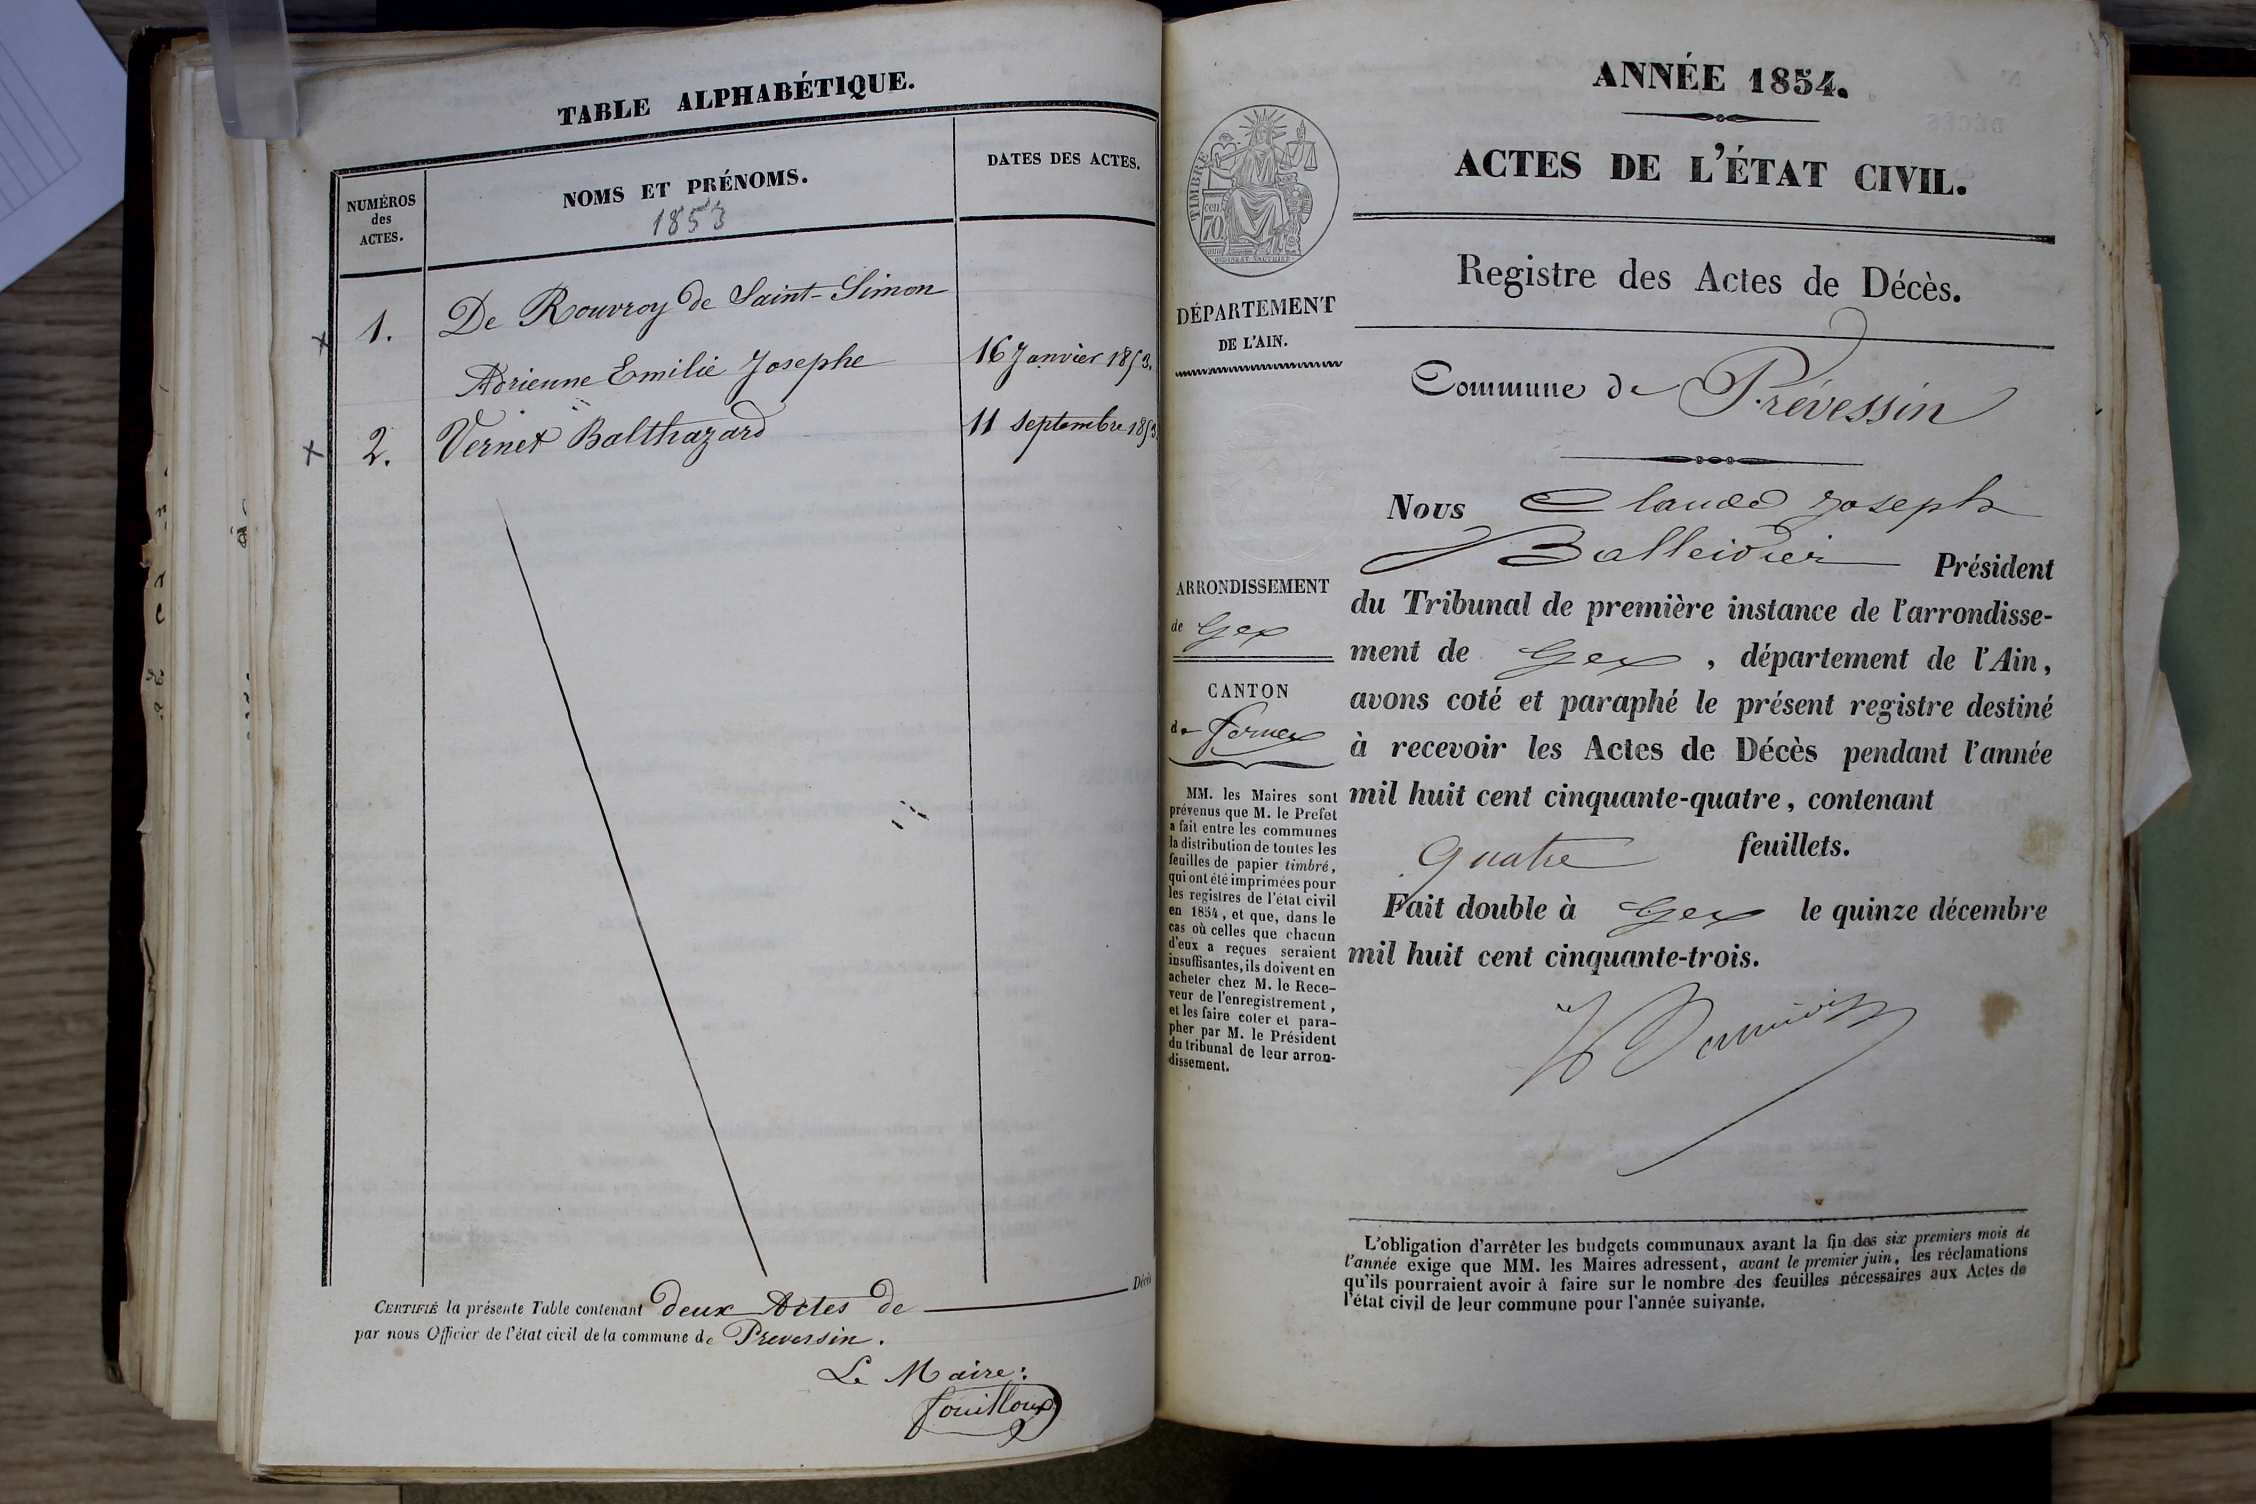 TABLE ALPHABÉTIQUE.
NUMÉROS
des
ACTES.
NOMS ET PRÉNOMS.
1853
DATES DES ACTES.
1. De Rouvroy de Saint-Simon
Adrienne Emilie Josephe 16 Janvier 1853.
2. Vernet Balthazard 11 Septembre 1853
CERTIFIÉ la présente Table contenant deux Actes de Décès
par nous Officier de l'état civil de la commune de Prevessin.
Le Maire:
fouilloux
ANNÉE 1854.
ACTES DE L'ÉTAT CIVIL.
Registre des Actes de Décès.
TIMBRE
70 cen
DÉPARTEMENT
DE L'AIN.
ARRONDISSEMENT
de Gex
CANTON
de ferney
MM. les Maires sont
prévenus que M. le Préfet
a fait entre les communes
la distribution de toutes les
feuilles de papier timbré,
qui ont été imprimées pour
les registres de l'état civil
en 1854, et que, dans le
cas où celles que chacun
d'eux a reçues seraient
insuffisantes, ils doivent en
acheter chez M. le Rece-
veur de l'enregistrement,
et les faire coter et para-
pher par M. le Président
du tribunal de leur arron-
dissement.
Commune de Prévessin
Nous Claude Joseph
Balleidier Président
du Tribunal de première instance de l'arrondisse-
ment de Gex, département de l'Ain,
avons coté et paraphé le présent registre destiné
à recevoir les Actes de Décès pendant l'année
mil huit cent cinquante-quatre, contenant
quatre feuillets.
Fait double à Gex le quinze décembre
mil huit cent cinquante-trois.
L'obligation d'arrêter les budgets communaux avant la fin des six premiers mois de
l'année exige que MM. les Maires adressent, avant le premier juin, les réclamations
qu'ils pourraient avoir à faire sur le nombre des feuilles nécessaires aux Actes de
l'état civil de leur commune pour l'année suivante.